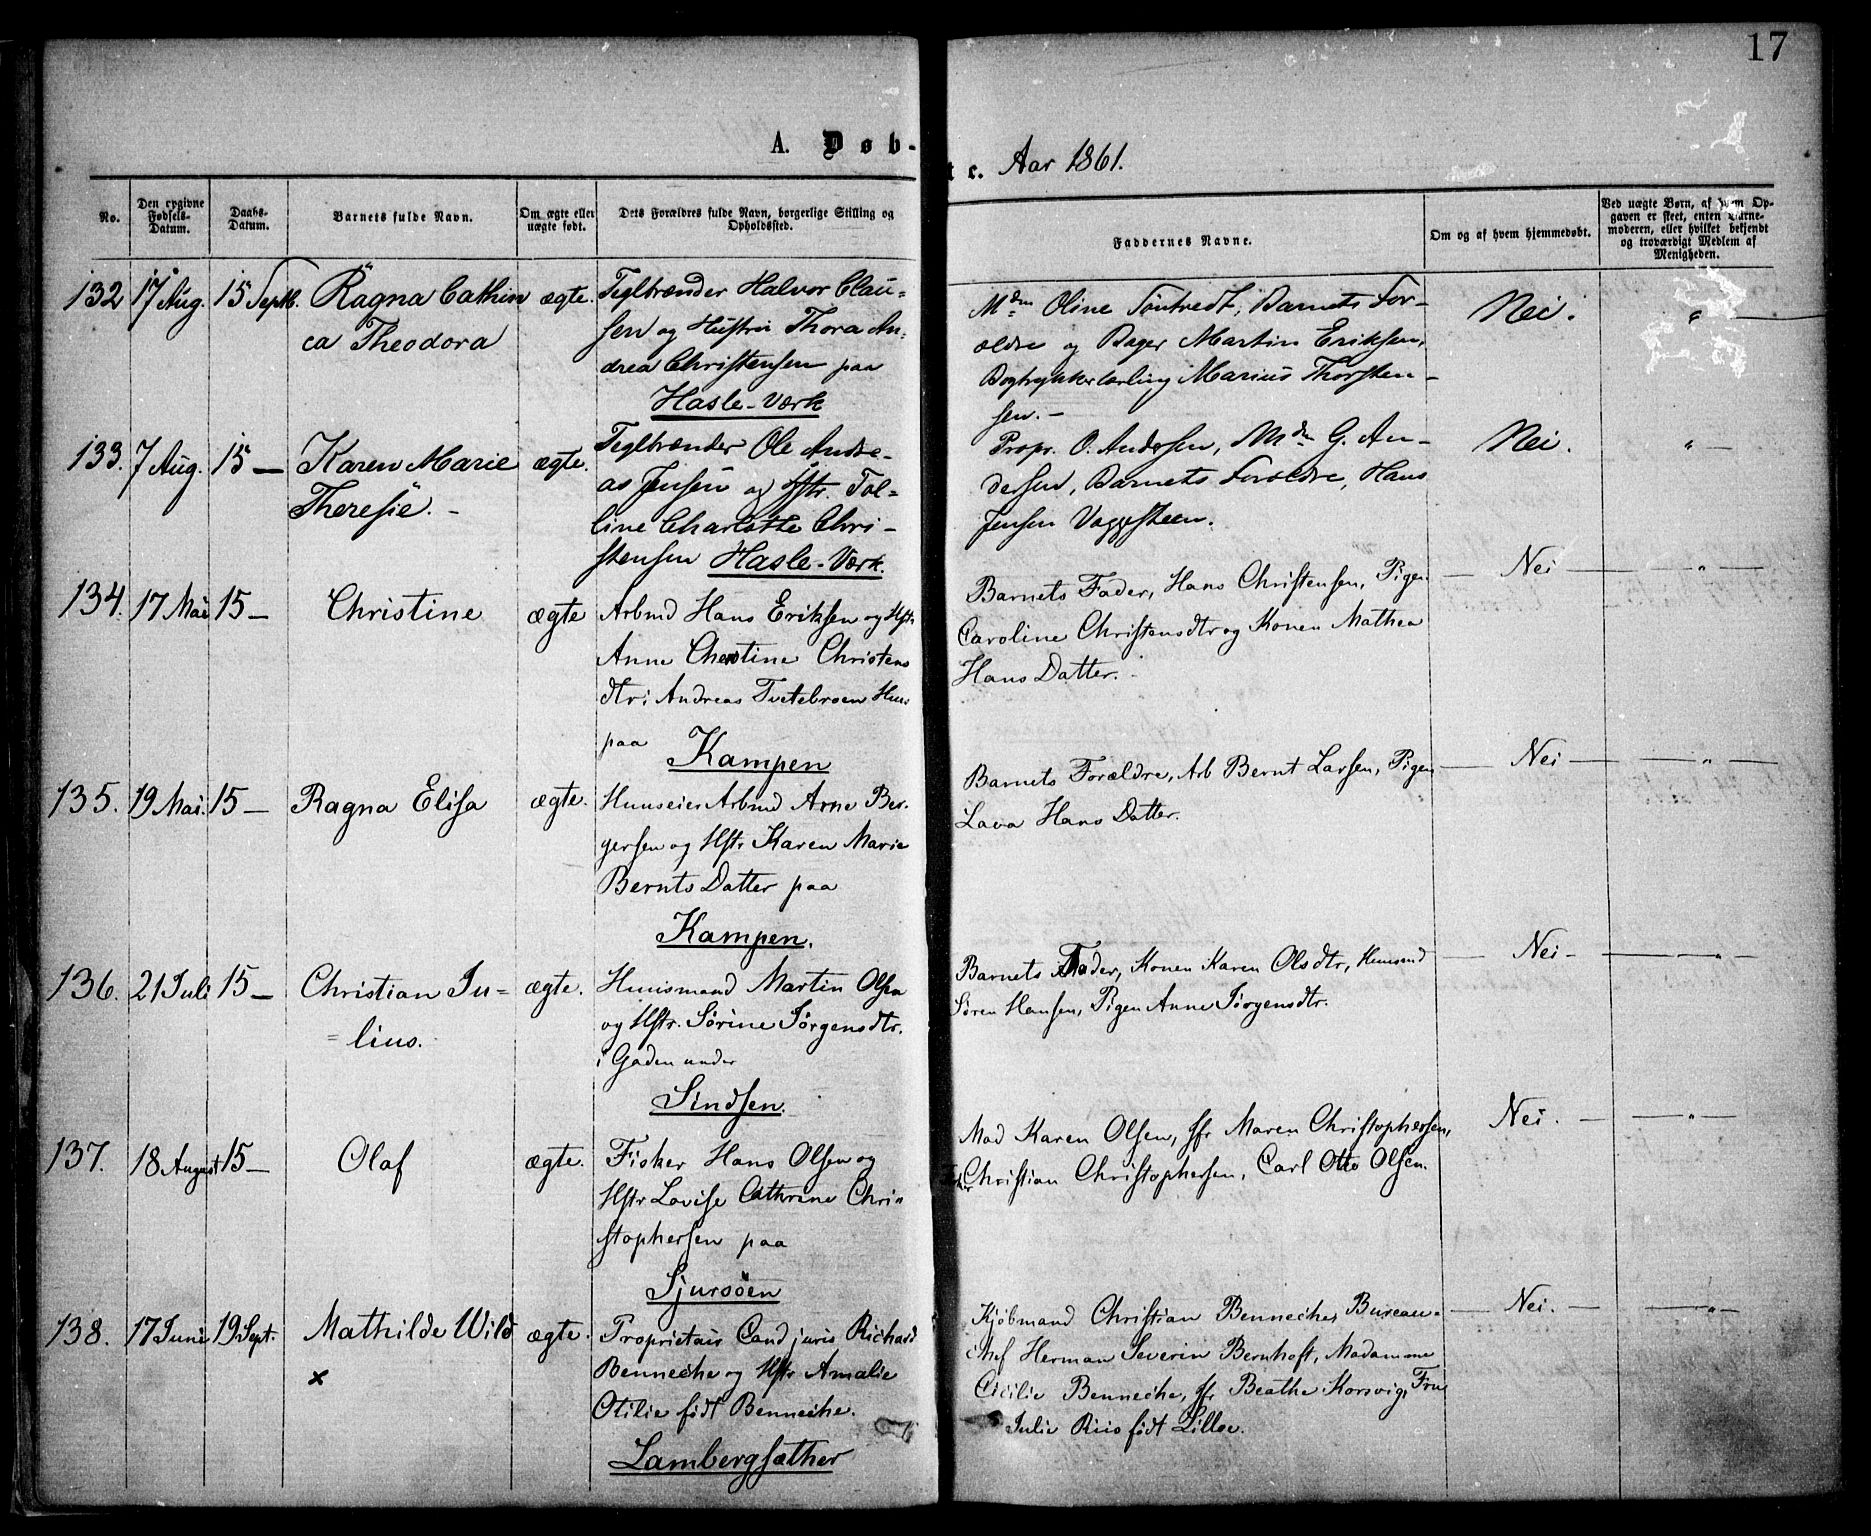 17
A. Døb-
te. Aar 1861.
No.
Den opgivne Fødsels-Datum.
Daabs-Datum.
Barnets fulde Navn.
Om ægte eller uægte født.
Dets Forældres fulde Navn, borgerlige Stilling og Opholdssted.
Faddernes Navne.
Om og af hvem hjemmedøbt.
Ved uægte Børn, af hvem Opgaven er skeet, enten Barnemoderen, eller hvilket bekjendt og troværdigt Medlem af Menigheden.
132 17 Aug. 15 Septb. Ragna Cathin ægte. Teglbrænder Halvor Clau-
ca Theodora
sen og Hustru Thora An-
drea Christensen paa
Hasle-Værk
Mdm Oline Tontvedt, Barnets For-
ældre og Bager Martin Eriksen,
Bogtrykkerlærling Marius Thorsten-
sen.-
Nei.
"
133. 7 Aug. 15 — Karen Marie ægte. Teglbrænder Ole Andre-
Theresie. -
as Jensen og Hstr. Tol-
line Charlotte Chri-
stensen Hasle-Værk.
Propr. O. Andersen, Mdm G. An-
dersen, Barnets Forældre, Hans
Jensen Vaggesteen.
Nei.
" —
134. 17 Mai 15 — Christine ægte Arbmd Hans Eriksen og Hstr
Anne Christine Christens
dtr i Andreas Tvetebroen Huus
paa Kampen
Barnets Fader, Hans Christensen, Pigen
Caroline Christensdtr og Konen Mathea
Hans Datter.
— Nei —
— " —
135. 19 Mai. 15 — Ragna Elisa ægte. Huuseier Arbmd Arne Ber-
gersen og Hstr Karen Marie
Bernts Datter paa
Kampen.
Barnets Forældre, Arb Bernt Larsen, Pigen
Lava Hans Datter.
— Nei —
— " —
136. 21 Juli 15 — Christian Ju= ægte. Huusmand Martin Olsen
= lius.
og Hstr. Sørine Jørgensdtr.
i Gaden under
Sindsen.
Barnets Fader, Konen Karen Olsdtr, Huusmd
Søren Hansen, Pigen Anne Jørgensdtr.
— Nei —
— " —
137. 18 August 15 — Olaf ægte. Fisker Hans Olsen og
Hstr Lovise Cathrine Chri-
stophersen paa
Sjursøen
Mad Karen Olsen, Jfr Maren Christophersen,
Christian Christophersen, Carl Otto Olsen.
Nei. —
— " —
138. 17 Juni 19 Sept. Mathilde Wild ægte. Proprietair Cand juris Richard
x
Benneche og Hstr Amalie
Otilie født Benneche.
Lambergsæther
Kjøbmand Christian Benneche, Bureau-
chef Herman Severin Bernhoft, Madamme
Cicilie Benneche, Jfr Beathe Korsvig, Fru
Julie Riis født Lilloe.
— Nei. —
— " —